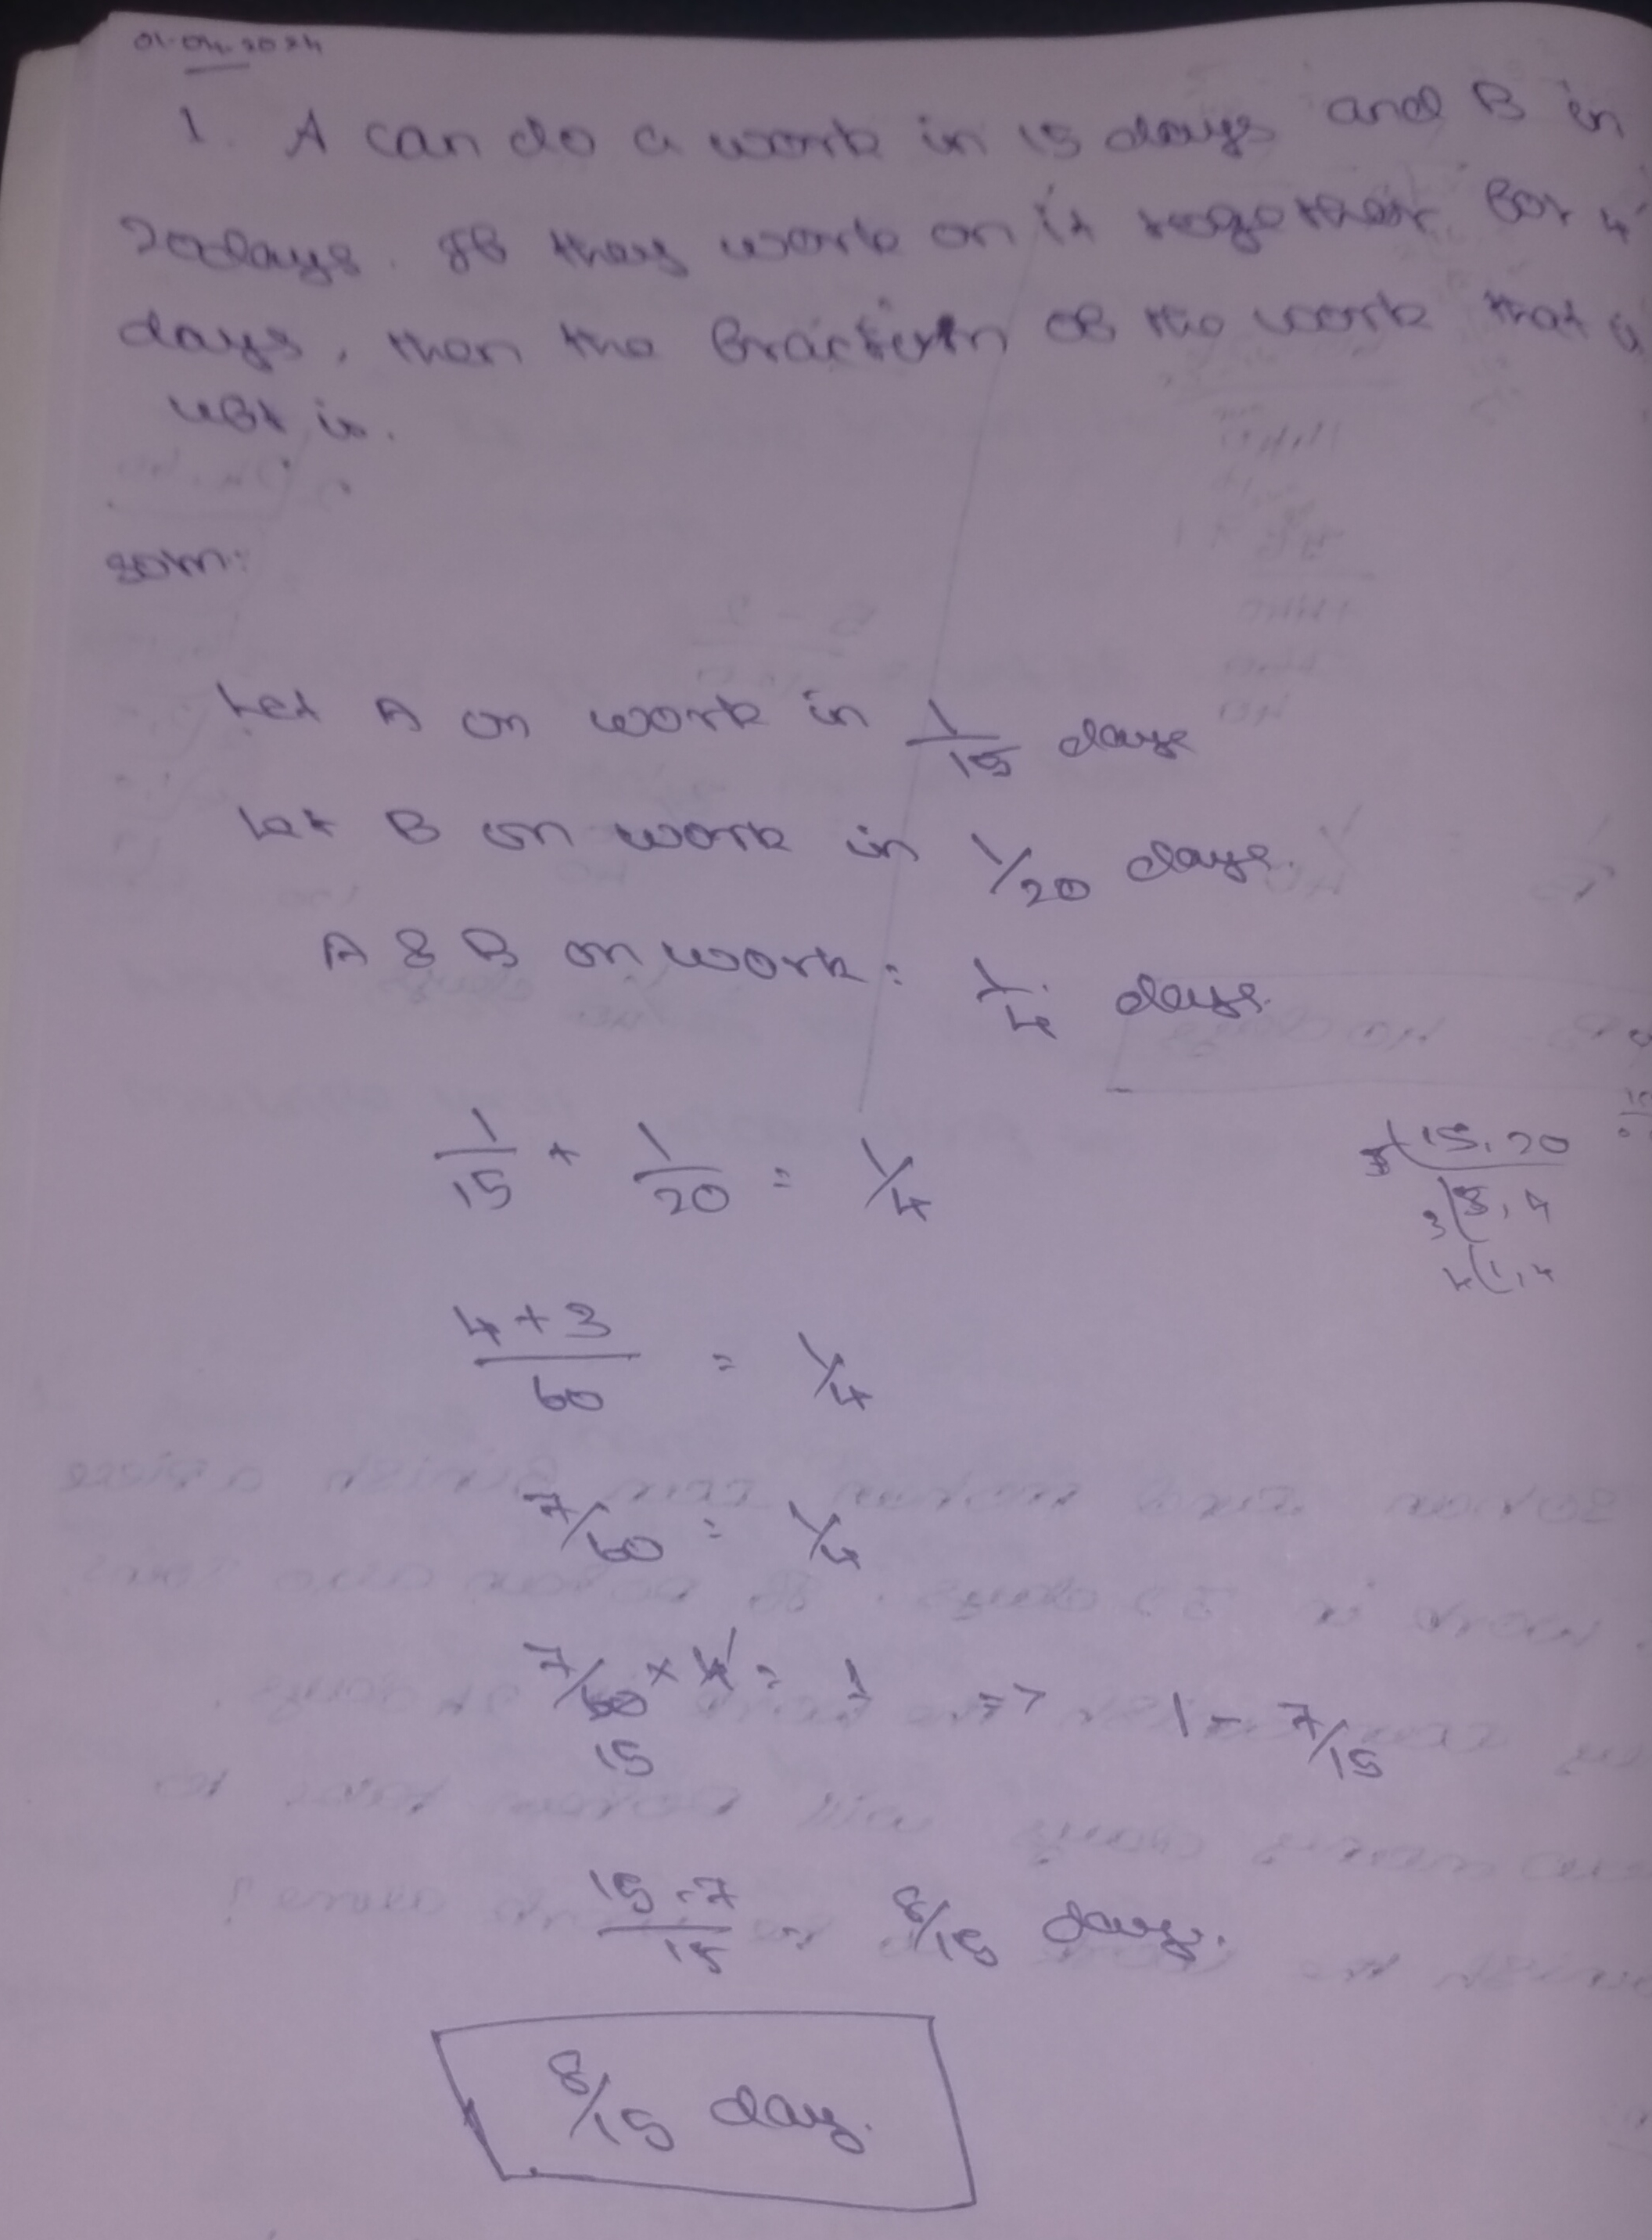 01-04-2024
1. A can do a work in 15 days and B in
20days. If they work on it together for 4
days, then the fraction of the work that is
left is.
soln:
Let A on work in 1/15 days
Let B on work in 1/20 days.
A & B on work = 1/4 days.
1/15 + 1/20 = 1/4
5 | 15, 20
3 | 3, 4
4 | 1, 4
4+3/60 = 1/4
7/60 = 1/4
7/60 × 4 = 1 => 1 - 7/15
15
15-7/15 = 8/15 days.
8/15 day.